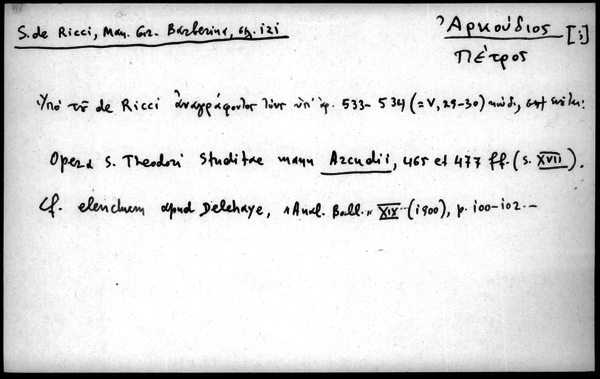 S. de Ricci, Man. Gr. Barberina, σελ. 121
Ἀρκούδιος [;]
Πέτρος
Ὑπὸ τοῦ de Ricci ἀναγράφονται ὑπ' ἀρ. 533-534 (= V, 29-30)
Opera S. Theodori Studitae manu Arcudii, 465 et 477 ff. (s. XVII).
Cf. elenchum apud Delehaye, «Anal. Boll.» XIX (1900), p. 100-102.-